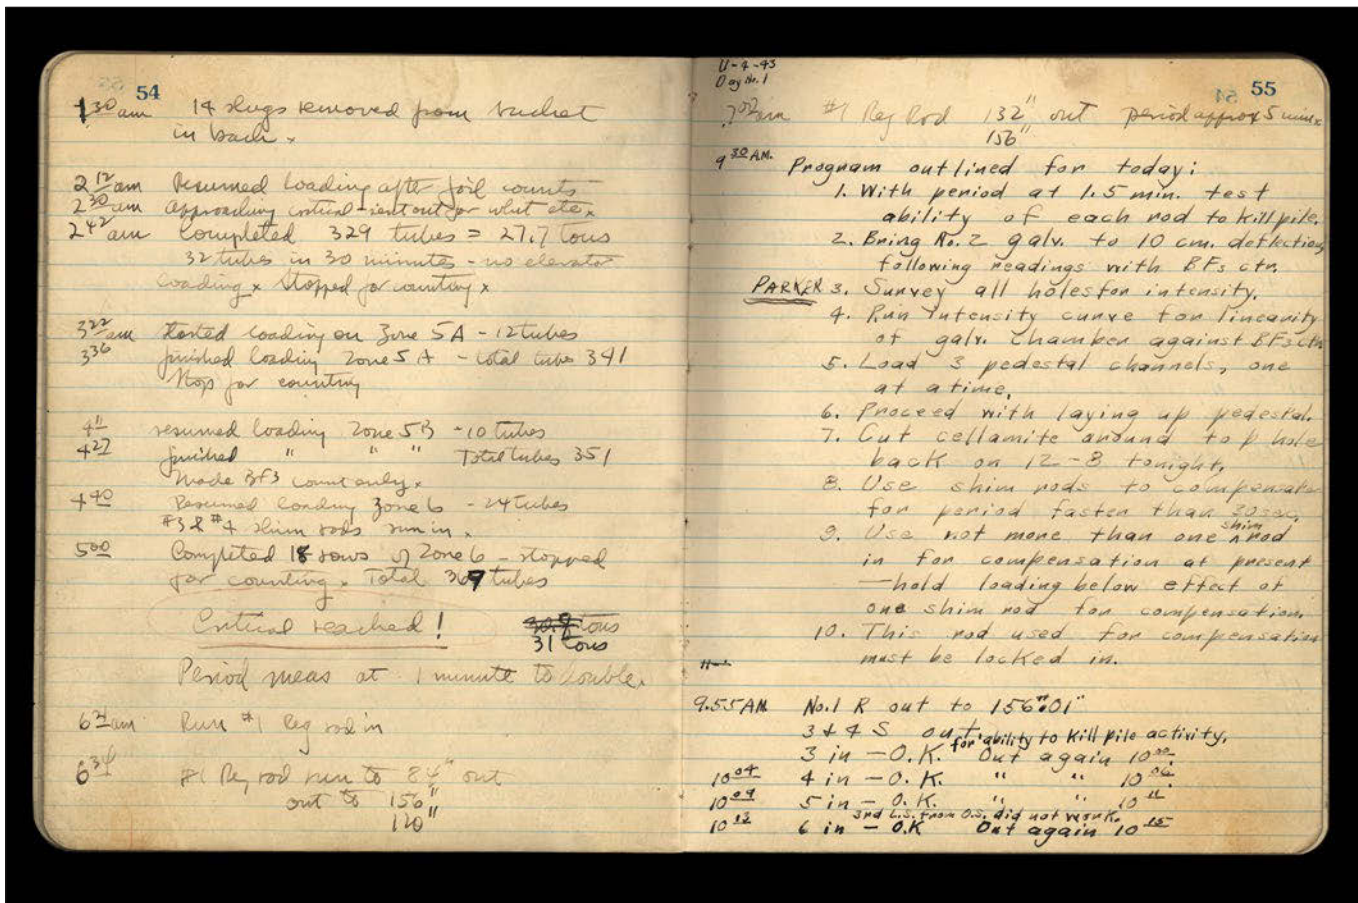 54
1 30 am 14 slugs removed from bucket
in back.
2 12 am Resumed loading after foil counts
2 30 am approaching critical - sent out for whit etc.
2 42 am Completed 329 tubes = 27.7 tons
32 tubes in 30 minutes - no elevator
loading. Stopped for counting.
3 22 am Started loading on Zone 5A - 12 tubes
3 36 finished loading Zone 5A - total tubes 341
Stop for counting
4 11 resumed loading Zone 5B - 10 tubes
4 27 finished " " " Total tubes 351
Made BF3 count only.
4 40 Resumed loading Zone 6 - 24 tubes
#3 & #4 shim rods run in.
5 00 Completed 18 rows of Zone 6 - stopped
for counting. Total 369 tubes
Critical reached! tons
31 tons
Period meas at 1 minute to double.
am Run #1 Reg rod in
6 34 #1 Reg rod run to 84" out
out to 156"
120"
55
11-4-43
Day No. 1
7 02 am #1 Reg Rod 132" out period approx 5 min.
156"
9 30 A.M. Program outlined for today:
1. With period at 1.5 min. test
ability of each rod to kill pile.
2. Bring No. 2 galv. to 10 cm. deflection,
following readings with BF3 ctr.
PARKER 3. Survey all holes for intensity.
4. Run intensity curve for linearity
of galv. chamber against BF3 ctr
5. Load 3 pedestal channels, one
at a time.
6. Proceed with laying up pedestal.
7. Cut cellamite around top hole
back on 12-8 tonight.
8. Use shim rods to compensate
for period faster than 30 sec.
9. Use not more than one shim rod
in for compensation at present
— hold loading below effect of
one shim rod for compensation.
10. This rod used for compensation
must be locked in.
11-
9.55 AM No. 1 R out to 156".01"
3 + 4 S out. for ability to kill pile activity.
3 in - O.K. Out again 10 00.
10 04 4 in - O.K. " " 10 06.
10 09 5 in - O.K. " " 10 11
3rd L.S. from O.S. did not work.
10 13 6 in - O.K Out again 10 15